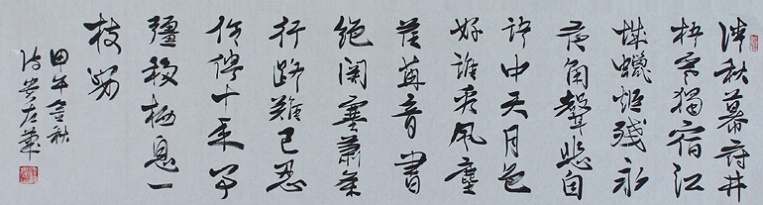 清秋幕府井
梧寒獨宿江
城蠟炬殘永
夜角聲悲自
語中天月色
好誰看風塵
荏苒音書
絕關塞蕭條
行路難已忍
伶俜十年事
彊移栖息一
枝安
甲午金秋